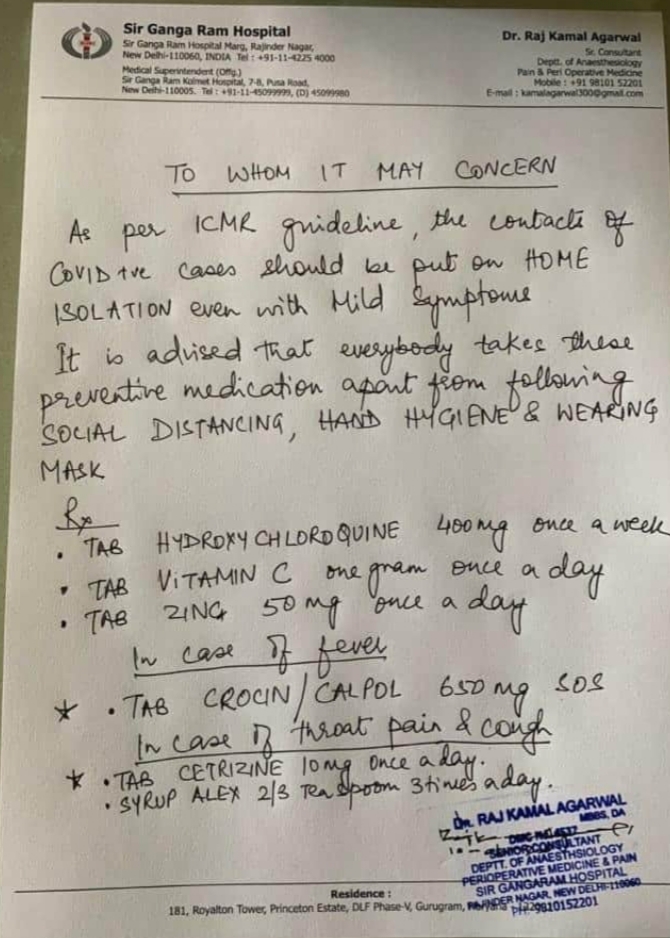 Sir Ganga Ram Hospital
Sir Ganga Ram Hospital Marg, Rajinder Nagar,
New Delhi-110060, INDIA Tel : +91-11-4225 4000
Medical Superintendent (Offg.)
Sir Ganga Ram Kolmet Hospital, 7-B, Pusa Road,
New Delhi-110005. Tel : +91-11-45099999, (D) 45099980
Dr. Raj Kamal Agarwal
Sr. Consultant
Deptt. of Anaesthesiology
Pain & Peri Operative Medicine
Mobile : +91 98101 52201
E-mail : kamalagarwal300@gmail.com
TO WHOM IT MAY CONCERN
As per ICMR guideline, the contacts of
COVID +ve cases should be put on HOME
ISOLATION even with Mild Symptoms
It is advised that everybody takes these
preventive medication apart from following
SOCIAL DISTANCING, HAND HYGIENE & WEARING
MASK
Rx
• TAB HYDROXYCHLOROQUINE 400mg once a week
• TAB VITAMIN C one gram once a day
• TAB ZING 50 mg once a day
In case of fever
• TAB CROCIN/CALPOL 650 mg SOS
In case of throat pain & cough
• TAB CETRIZINE 10mg once a day.
• SYRUP ALEX 2/3 Tea spoom 3 times a day.
Dr. RAJ KAMAL AGARWAL
MBBS, DA
SENIOR CONSULTANT
DEPTT. OF ANAESTHSIOLOGY
PERIOPERATIVE MEDICINE & PAIN
SIR GANGARAM HOSPITAL
RAJINDER NAGAR, NEW DELHI-110060
PH: 9810152201
Residence :
181, Royalton Tower, Princeton Estate, DLF Phase-V, Gurugram,